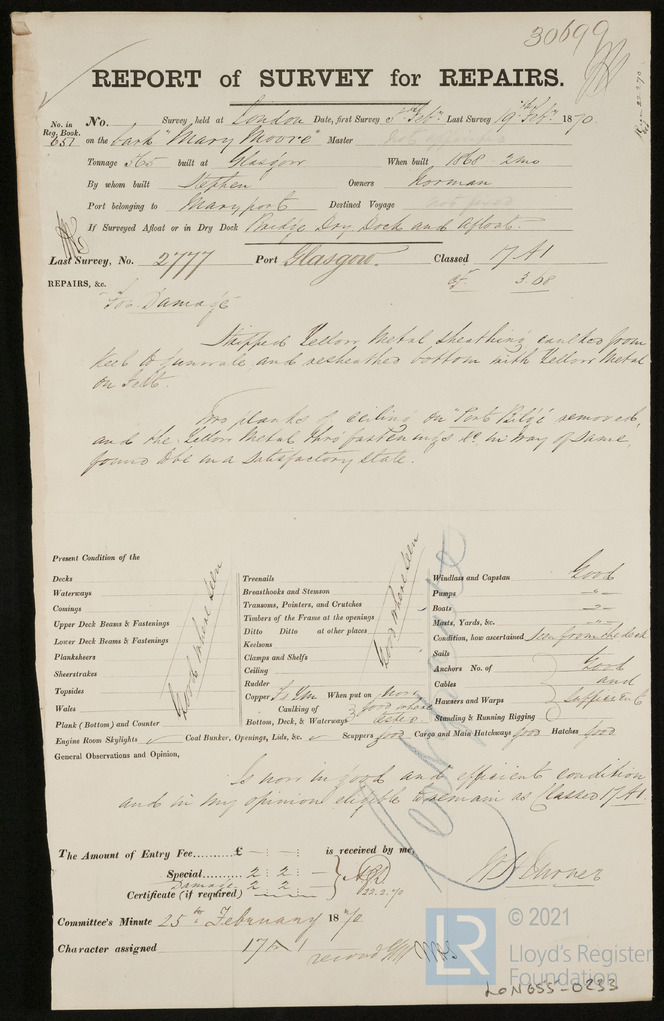 30699
REPORT of SURVEY for REPAIRS.
No. in Reg. Book. No. Survey held at London Date, first Survey 3rd Feby. Last Survey 19th Feby. 1870.
651 on the bark "Mary Moore" Master
Tonnage 365 built at Glasgow When built 1868 2mo
By whom built Stephen Owners Gorman
Port belonging to Maryport Destined Voyage not fixed
If Surveyed Afloat or in Dry Dock Bridge Dry Dock and Afloat.
Last Survey, No. 2777 Port Glasgow. Classed 17 A1
3.68
REPAIRS, &c.
For Damage
Stripped Yellow Metal sheathing caulked from
keel to gunwale and resheathed bottom with Yellow Metal
on Felt.
Two planks of ceiling on Port Bilge removed,
and the Yellow Metal thro' fastenings &c in way of same,
found to be in a satisfactory state.
Present Condition of the
Decks
Waterways
Comings
Upper Deck Beams & Fastenings
Lower Deck Beams & Fastenings
Planksheers
Sheerstrakes
Topsides
Wales
Plank (Bottom) and Counter
Good where seen
Treenails
Breasthooks and Stemson
Transoms, Pointers, and Crutches
Timbers of the Frame at the openings
Ditto Ditto at other places
Keelsons
Clamps and Shelfs
Ceiling
Rudder
Good where seen
Copper When put on Now
Caulking of Bottom, Deck, & Waterways good where tested
Windlass and Capstan Good
Pumps -"-
Boats -"-
Masts, Yards, &c. -"-
Condition, how ascertained seen from the deck
Sails
Anchors No. of
Cables
Hawsers and Warps
Standing & Running Rigging
Good and sufficient
Engine Room Skylights ✓ Coal Bunker, Openings, Lids, &c. ✓ Scuppers good Cargo and Main Hatchways good Hatches good
General Observations and Opinion,
Is now in good and efficient condition
and in my opinion eligible to remain as Classed 17 A1.
The Amount of Entry Fee.......... £ - : - : - is received by me,
Special ...... 2 : 2 : -
Damage 2 2 -
Certificate (if required)
22.2.70
Committee's Minute 25th February 1870
Character assigned 17 A 1
© 2021
LR
Lloyd's Register
Foundation
LONG55-0233